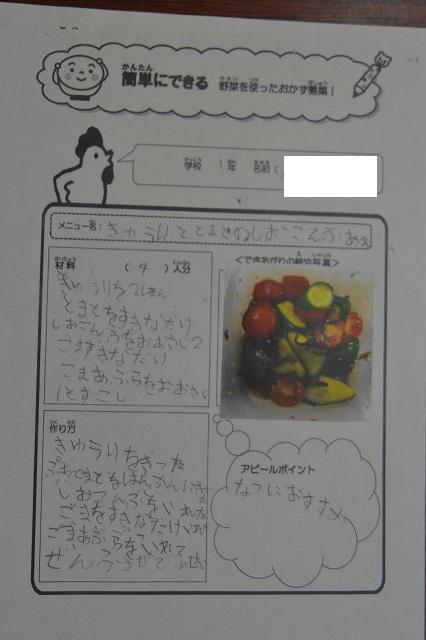 かんたん
簡単にできる 野菜を使ったおかず募集！
学校 1年 名前(
メニュー名: きゅうりととまとのしおこんぶあえ
材料 ( 4 )人分
きゅうりを2
とまとをすきなだけ
しおこんぶをおおさじ2
ごますきなだけ
ごまあぶらをおおさじ
1とすこし
<できあがりの絵や写真>
作り方
きゅうりをきった
ぷちとまとをはんぶんにきった
しおこんぶをいれた
ごまをすきなだけいれ
ごまあぶらをいれて
ぜんぶ
アピールポイント
なつにおすすめ